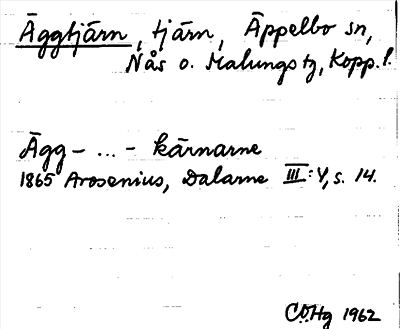 Äggtjärn, tjärn, Äppelbo sn,
Nås o. Malungs tg, Kopp. l.
Ägg- ... - kärnarne
1865 Arosenius, Dalarne III: Y, s. 14.
CÖHg 1962